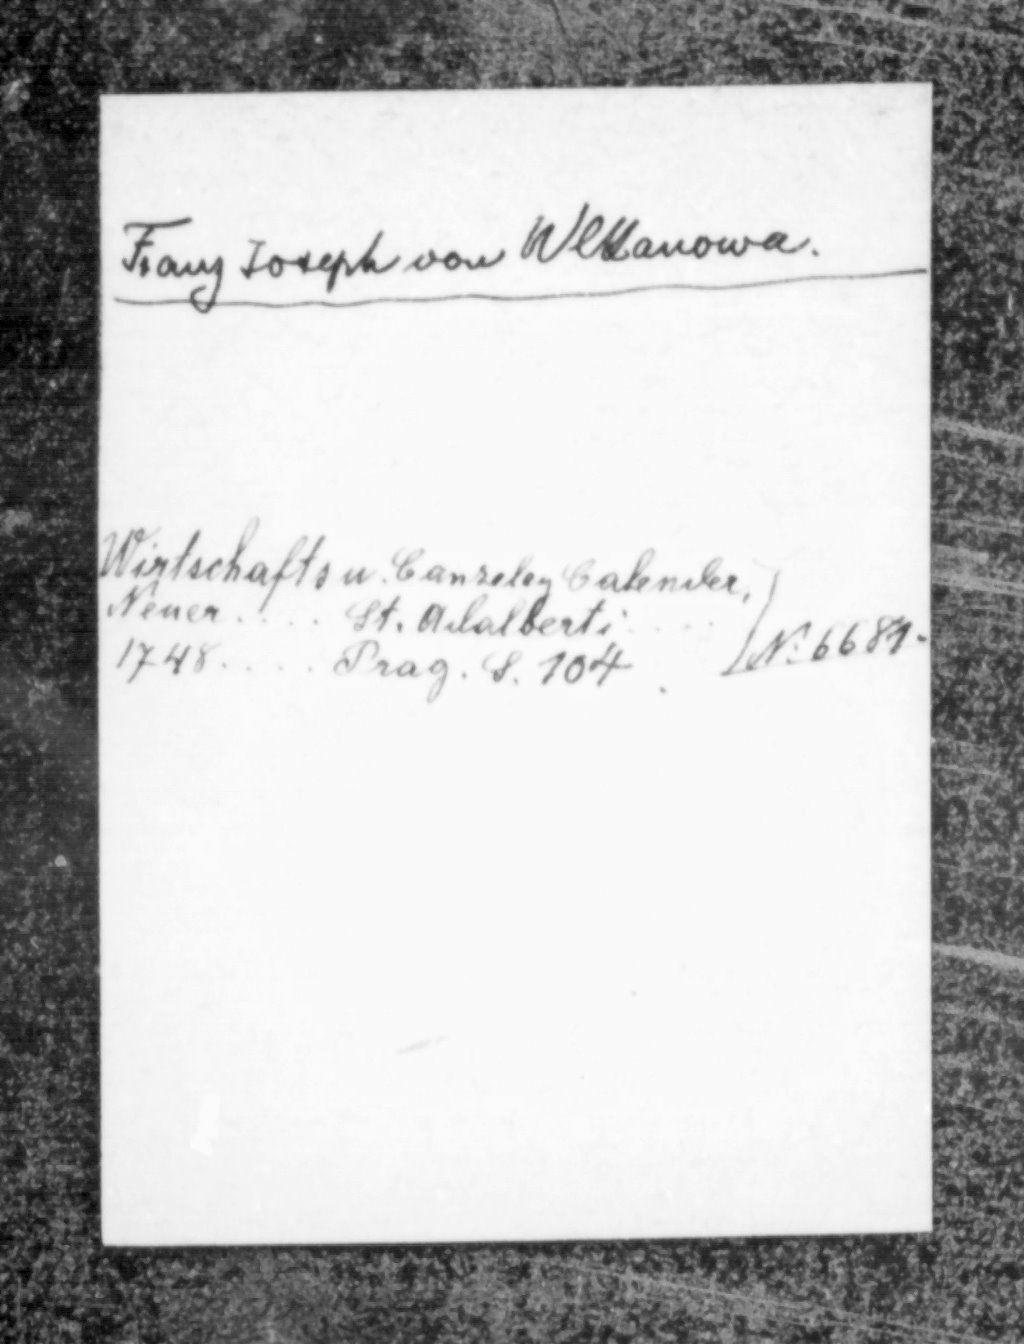 Franz Joseph von Wlkanowa.
Wirtschafts u. Canzeley Calender,
Neuer . . . . St. Adalberti . . . .
1748 . . . . Prag. S. 104 .
N: 6681.